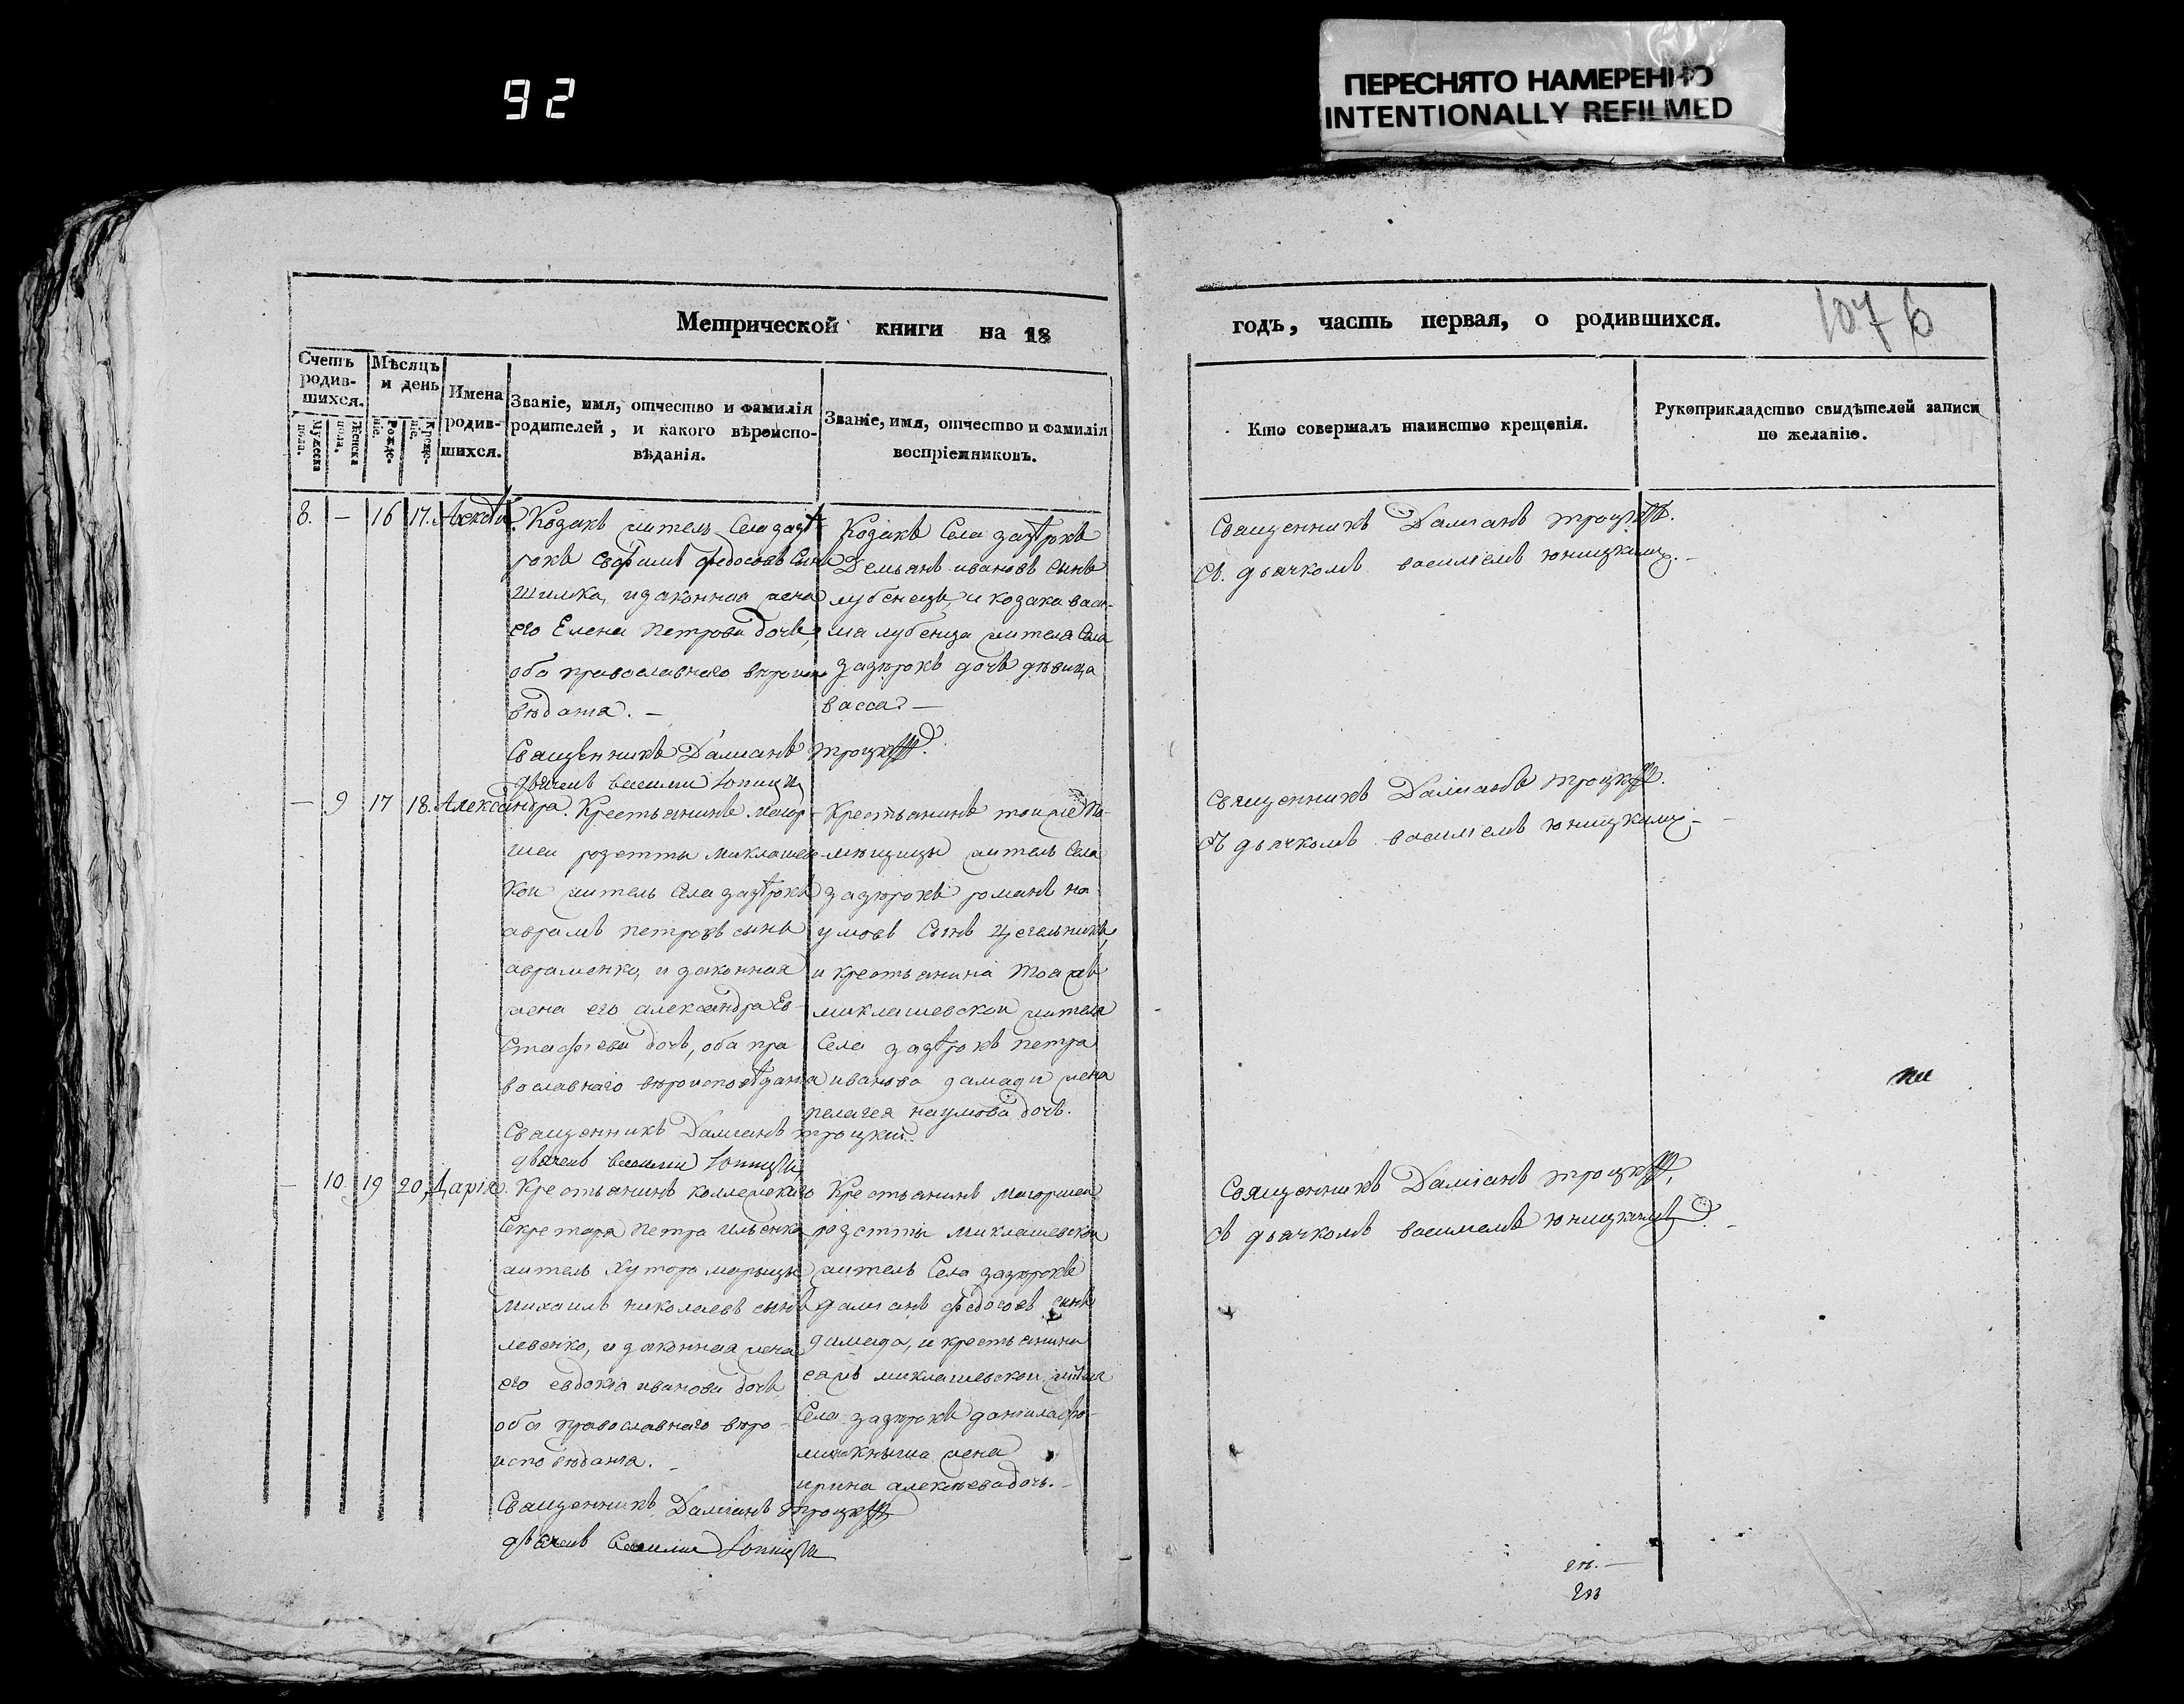 92
ПЕРЕСНЯТО НАМЕРЕННО
INTENTIONALLY REFILMED
Метрической книги на 18
годъ, часть первая, о родившихся.
107 6
Счетъ родив-шихся.
Мужеска пола.
Женска пола.
Мѣсяцъ и день
Рожде-ніе.
Креще-ніе.
Имена родив-шихся.
Званіе, имя, отчество и фамилія
родителей, и какого вѣроиспо-
вѣданія.
Званіе, имя, отчество и фамилія
воспріемниковъ.
Кто совершалъ таинство крещенія.
Рукоприкладство свидѣтелей записи
по желанію.
8. — 16 17.
Козакъ житель Села зазѣ
рокъ федосѣевъ Сынъ
Шилка, и законная жена
его Елена Петрова дочь,
оба православнаго вѣроиспо
вѣданія. —
Священникъ Даміанъ троцкій.
Козакъ Села зазѣрокъ
Демьянъ ивановъ Сынъ
лубенецъ, и козака васи-
лія лубенца жителя Села
зазѣрокъ дочь дѣвица
васса. —
Священникъ Даміанъ троцкій.
съ дьячкомъ василіемъ юницкимъ. —
— 9 17 18. Александра.
Крестьянинъ маіор-
шеи розетты миклашев
кои житель Села зазѣрокъ
аврамъ петровъ сынъ
авраменко, и законная
жена его александра Ев-
стафіева дочь, оба пра-
вославнаго вѣроисповѣданія
Священникъ Даміанъ троцкій.
Крестьянинъ тоиже По-
мѣщицы житель Села
зазѣрокъ романъ на
умовъ Сынъ Цегельникъ,
и крестьянина тоажъ
миклашевскои жителя
Села зазѣрокъ петра
иванова жена
пелагея наумова дочь.
Священникъ Даміанъ троцкій.
съ дьячкомъ василіемъ юницкимъ —
— 10. 19 20, Дарія.
Крестьянинъ коллежскаго
Секретаря Петра Ильенка
житель Хутора
михаилъ николаевъ сынъ
левенко, и законная жена
его евдокіа иванова дочь
оба православнаго вѣро-
исповѣданія. —
Священникъ Даміанъ троцкій
Крестьянинъ маіоршеи
розетты миклашевскои
житель Села зазѣрокъ
даміанъ федосѣевъ сынъ
и крестьянина
миклашевскои
Села зазѣрокъ
жена
ирина алексѣева дочь. —
Священникъ Даміанъ троцкій,
съ дьячкомъ василіемъ юницкимъ. —